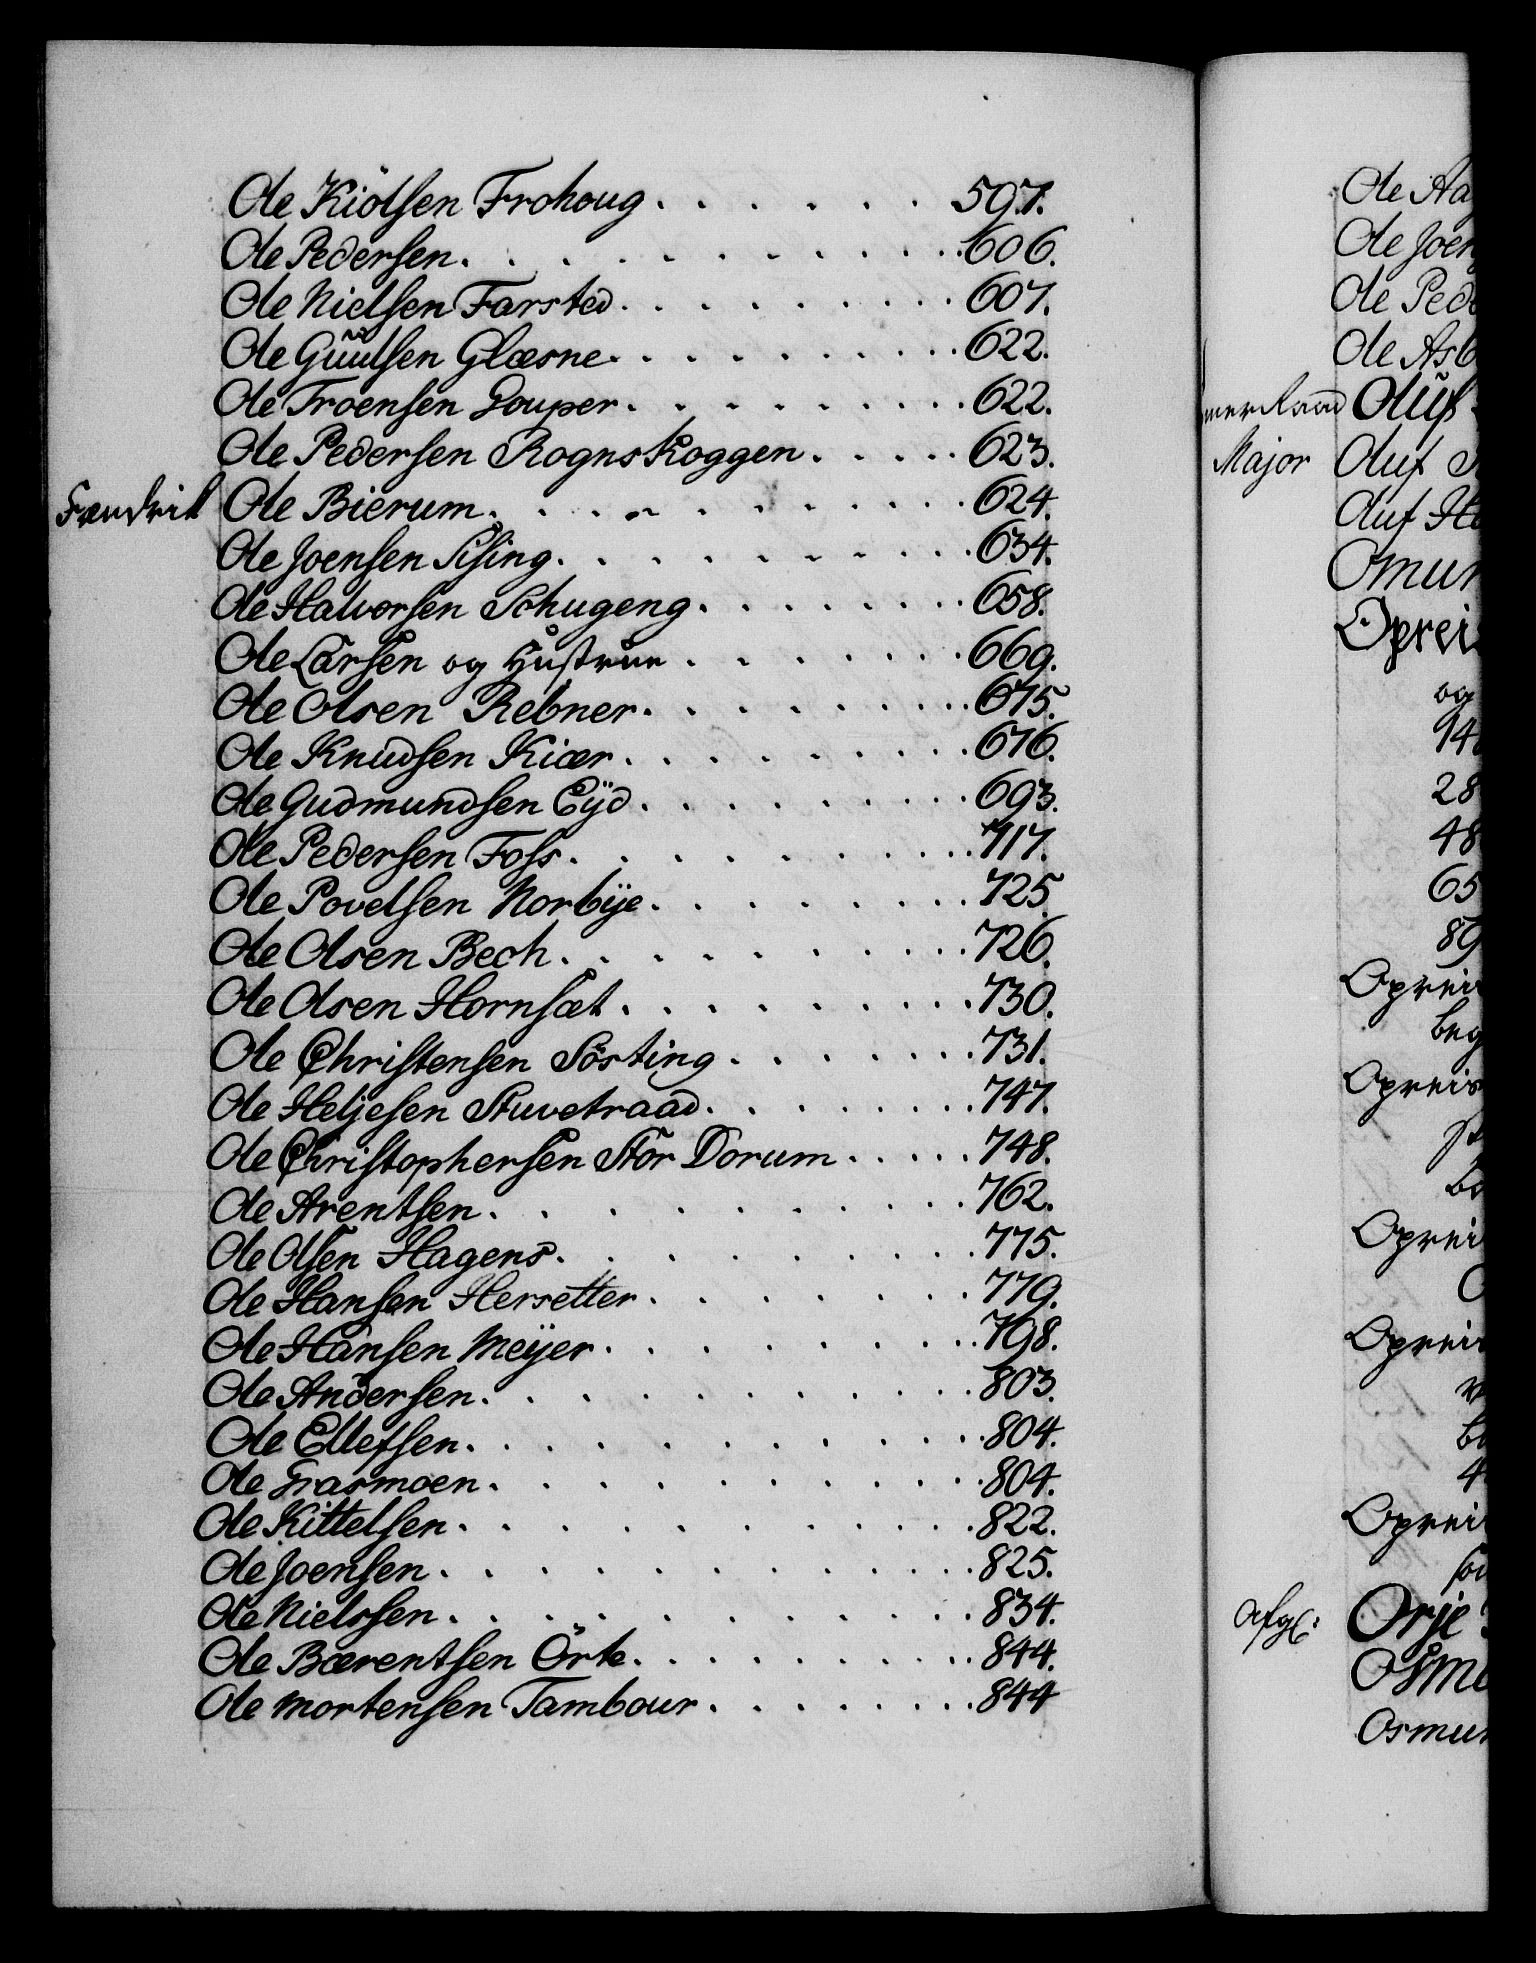 Ole Kiölsen Frohoug . . . . . . 597.
Ole Pedersen. . . . . . . . . . 606.
Ole Nielsen Farsted. . . . . . . 607.
Ole Guulsen Glæsne. . . . . . . 622.
Ole Troensen Qouper. . . . . . . 622.
Ole Pedersen Rognskoggen. . . . . 623.
Fændrik Ole Bierum. . . . . . . . . 624.
Ole Joensen Sising. . . . . . . . 634.
Ole Halvorsen Schugeng. . . . . . 658.
Ole Larsen og Hustrue . . . . . . 669.
Ole Olsen Rebner. . . . . . . . 675.
Ole Knudsen Kiær. . . . . . . . 676.
Ole Gudmundsen Eÿd. . . . . . . 693.
Ole Pedersen Foss. . . . . . . . 717.
Ole Povelsen Norbÿe. . . . . . . 725.
Ole Olsen Bech. . . . . . . . . 726.
Ole Olsen Hornsæt. . . . . . . . 730.
Ole Christensen Sösting. . . . . . 731.
Ole Heljesen Stuvetraad. . . . . . 747.
Ole Christophersen Stor Dorum. . . . 748.
Ole Arentsen. . . . . . . . . . 762.
Ole Olsen Hagens. . . . . . . . 775.
Ole Hansen Hersetter. . . . . . . 779.
Ole Hansen Meÿer. . . . . . . . 798.
Ole Andersen. . . . . . . . . . 803.
Ole Ellefsen. . . . . . . . . . 804.
Ole Grasmoen. . . . . . . . . . 804.
Ole Kittelsen. . . . . . . . . . 822.
Ole Joensen. . . . . . . . . . 825.
Ole Nielssen. . . . . . . . . . 834.
Ole Bærentsen Örte. . . . . . . 844.
Ole Mortensen Tambour. . . . . . 844
Ole
Ole
Ole
Ole
Oluf
Major Oluf
Oluf
og
28
48
65
89